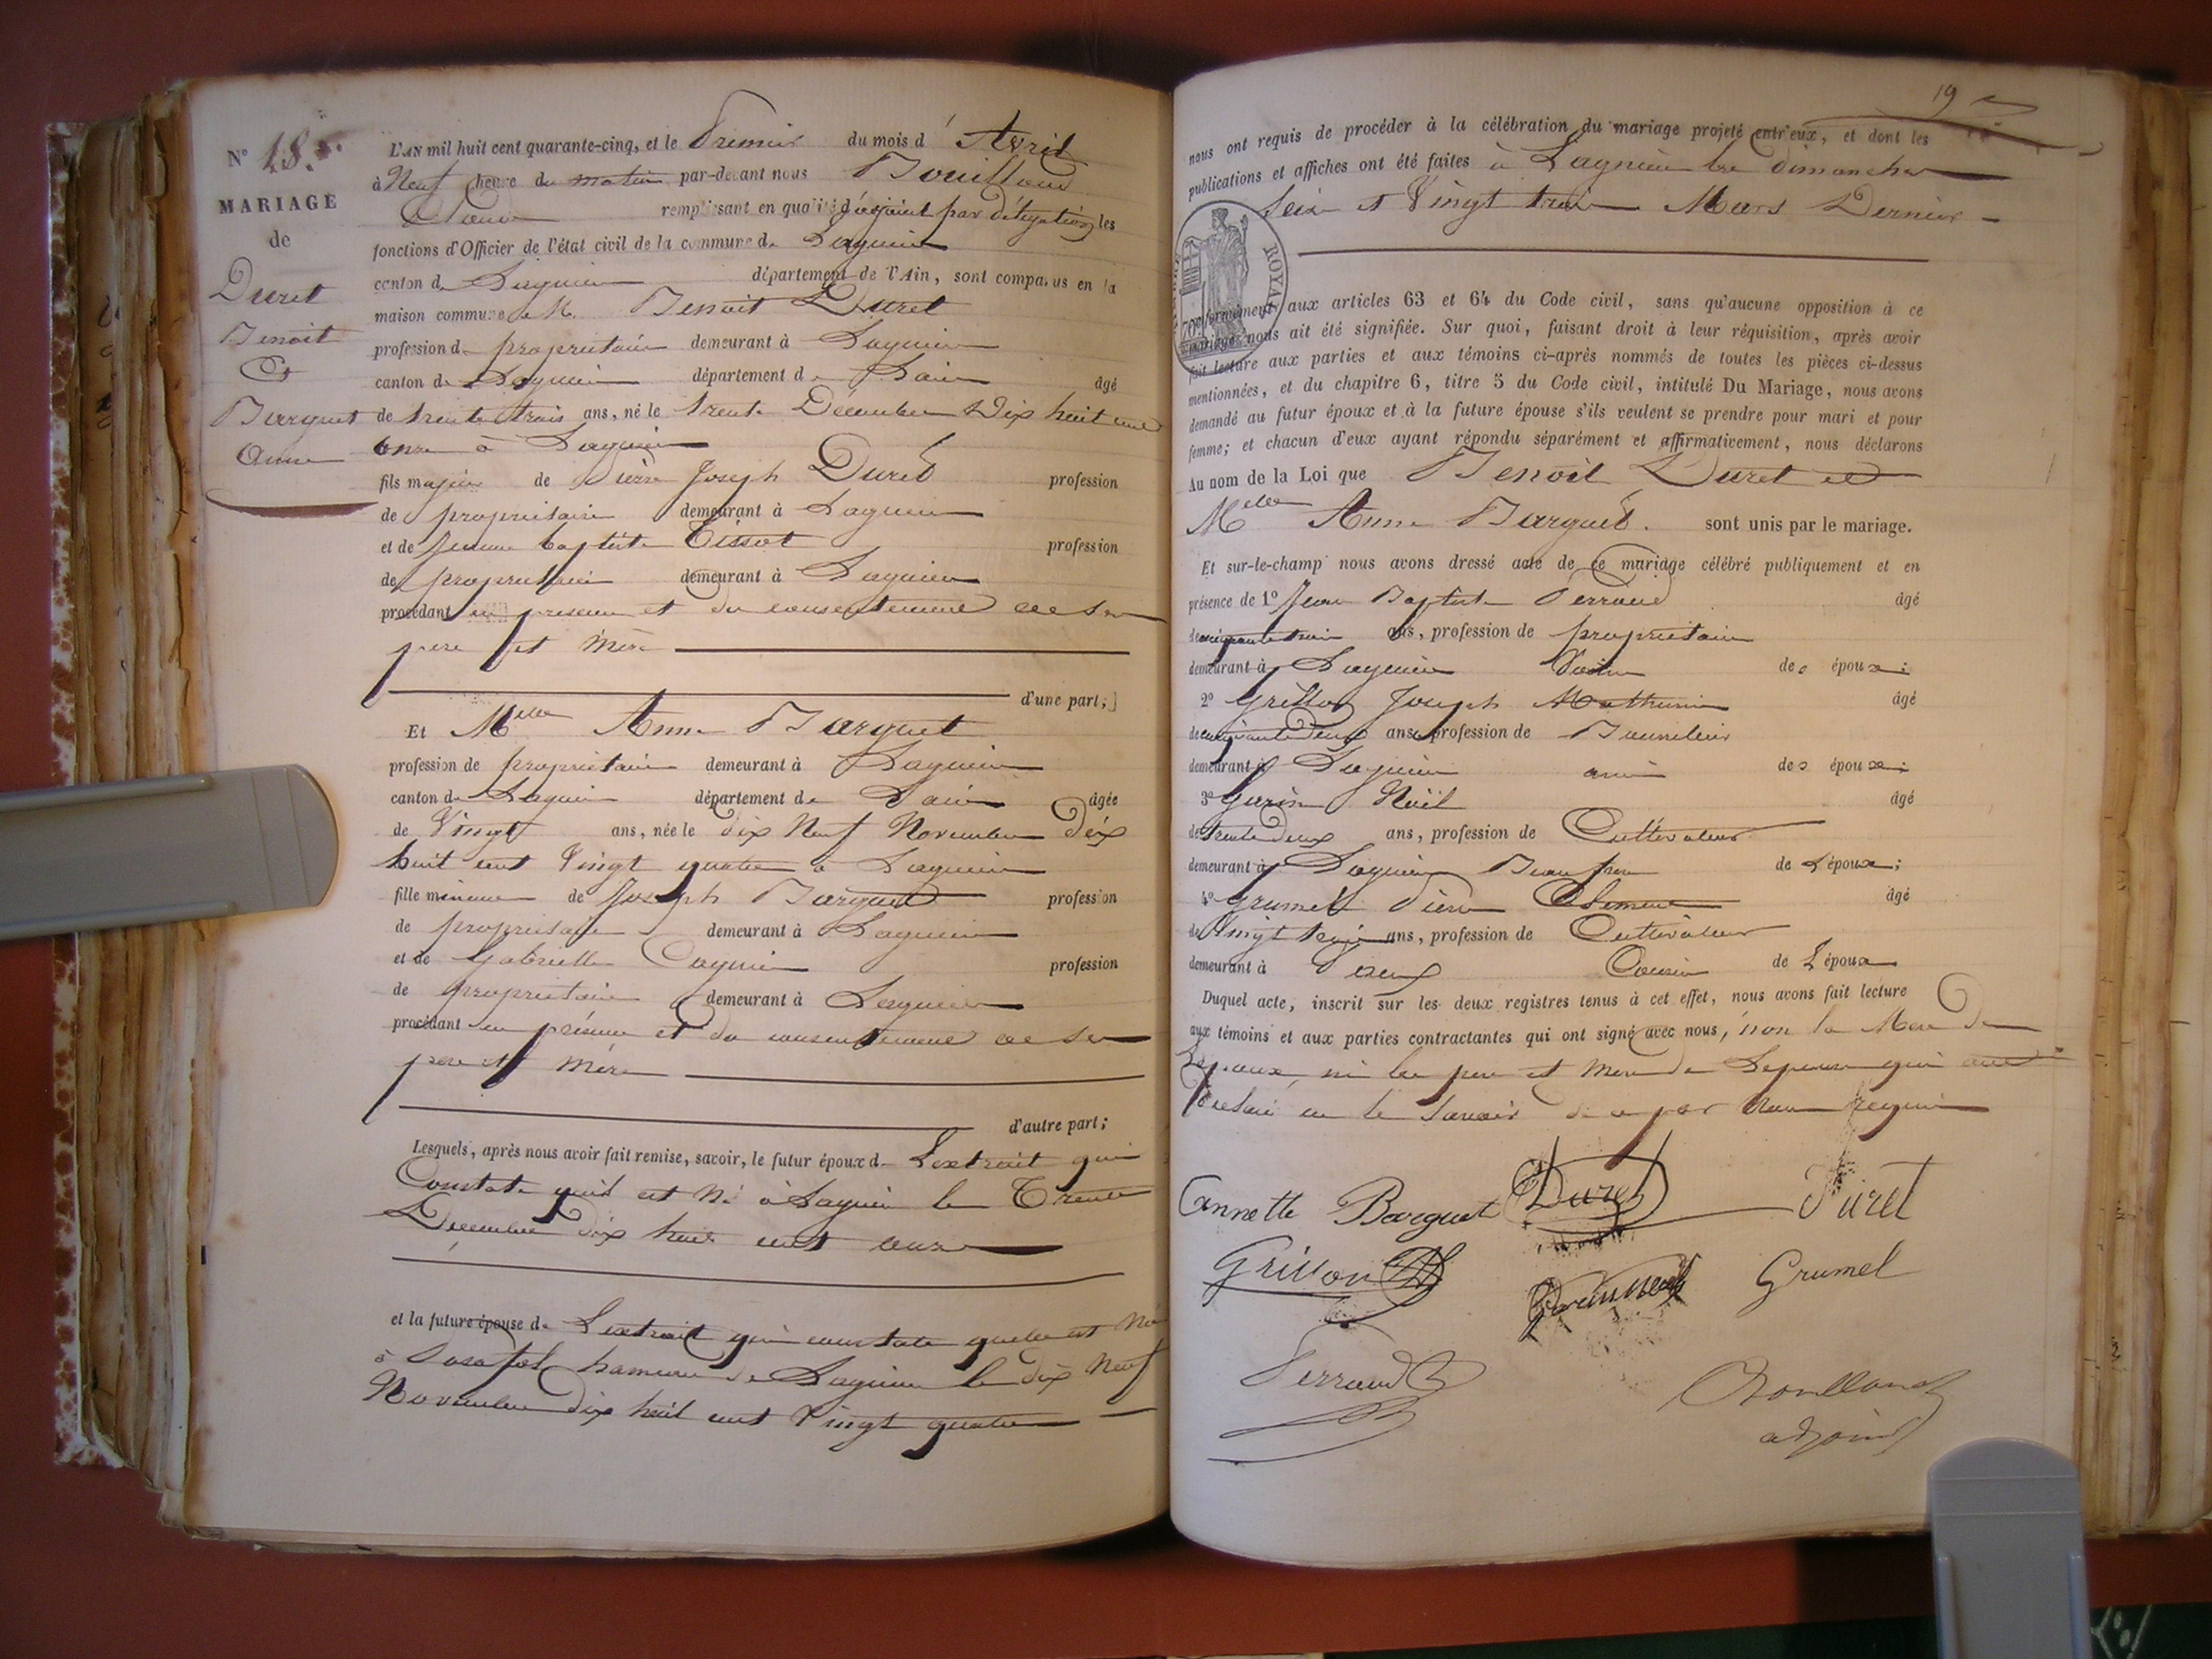 N° 18.
MARIAGE
de
Duret
Benoit
Et
Barquet
Anne
L'AN mil huit cent quarante-cinq, et le Premier du mois d'Avril
à Neuf heure du matin par-devant nous Bouilloud
remplissant en qualité d'adjoint par délégation les
fonctions d'Officier de l'état civil de la commune de Lagnieu
canton de Lagnieu département de l'Ain, sont comparus en la
maison commune M. Benoit Duret
profession de propriétaire demeurant à Lagnieu
canton de Lagnieu département de Lain âgé
de trente trois ans, né le trente Décembre Dix huit cent
onze à Lagnieu
fils majeur de Pierre Joseph Duret profession
de propriétaire demeurant à Lagnieu
et de Jeanne baptiste Tissot profession
de propriétaire demeurant à Lagnieu
procédant en présence et du consentement de ses
père et mère
d'une part;
Et Melle Anne Barquet
profession de propriétaire demeurant à Lagnieu
canton de Lagnieu département de Lain âgée
de Vingt ans, née le dix Neuf Novembre dix
huit cent Vingt quatre a Lagnieu
fille mineure de Joseph Barquet profession
de propriétaire demeurant à Lagnieu
et de Gabrielle profession
de propriétaire demeurant à Lagnieu
procédant en présence et du consentement de ses
père et mère
d'autre part;
Lesquels, après nous avoir fait remise, savoir, le futur époux de Lextrait qui
Constate quil est Né à Lagnieu le Trente
Décembre dix huit cent onze
et la future épouse de Lextrait qui constate quelle est Née
à Posafol hameau de Lagnieu le dix Neuf
Novembre dix huit cent Vingt quatre
19
nous ont requis de procéder à la célébration du mariage projeté entr'eux, et dont les
publications et affiches ont été faites à Lagnieu les dimanches
Seize et Vingt trois Mars Dernier
TIMBRE ROYAL
conformément aux articles 63 et 64 du Code civil, sans qu'aucune opposition à ce
mariage nous ait été signifiée. Sur quoi, faisant droit à leur réquisition, après avoir
fait lecture aux parties et aux témoins ci-après nommés de toutes les pièces ci-dessus
mentionnées, et du chapitre 6, titre 5 du Code civil, intitulé Du Mariage, nous avons
demandé au futur époux et à la future épouse s'ils veulent se prendre pour mari et pour
femme; et chacun d'eux ayant répondu séparément et affirmativement, nous déclarons
Au nom de la Loi que Benoit Duret et
Melle Anne Barquet. sont unis par le mariage.
Et sur-le-champ nous avons dressé acte de ce mariage célébré publiquement et en
présence de 1° Jean Baptiste Perraud âgé
de cinquante trois ans, profession de propriétaire
demeurant à Lagnieu Voisin des époux;
2° Grillon Joseph Mathurin âgé
de cinquante Deux ans, profession de
demeurant à Lagnieu ami des époux;
3° Guérin Noël âgé
de trente deux ans, profession de Cultivateur
demeurant à Lagnieu Beau frère de Lépoux;
4° Grumel Pierre Clément âgé
de Vingt ans, profession de Cultivateur
demeurant à Cousin de Lépoux
Duquel acte, inscrit sur les deux registres tenus à cet effet, nous avons fait lecture
aux témoins et aux parties contractantes qui ont signé avec nous, non la Mère de
Lépoux, ni les père et Mère de Lépouse qui ont
déclaré ne le savoir de ce par nous requis
Annette Barquet Duret Duret
Grillon Grumel
Perraud Bouilloud
adjoint